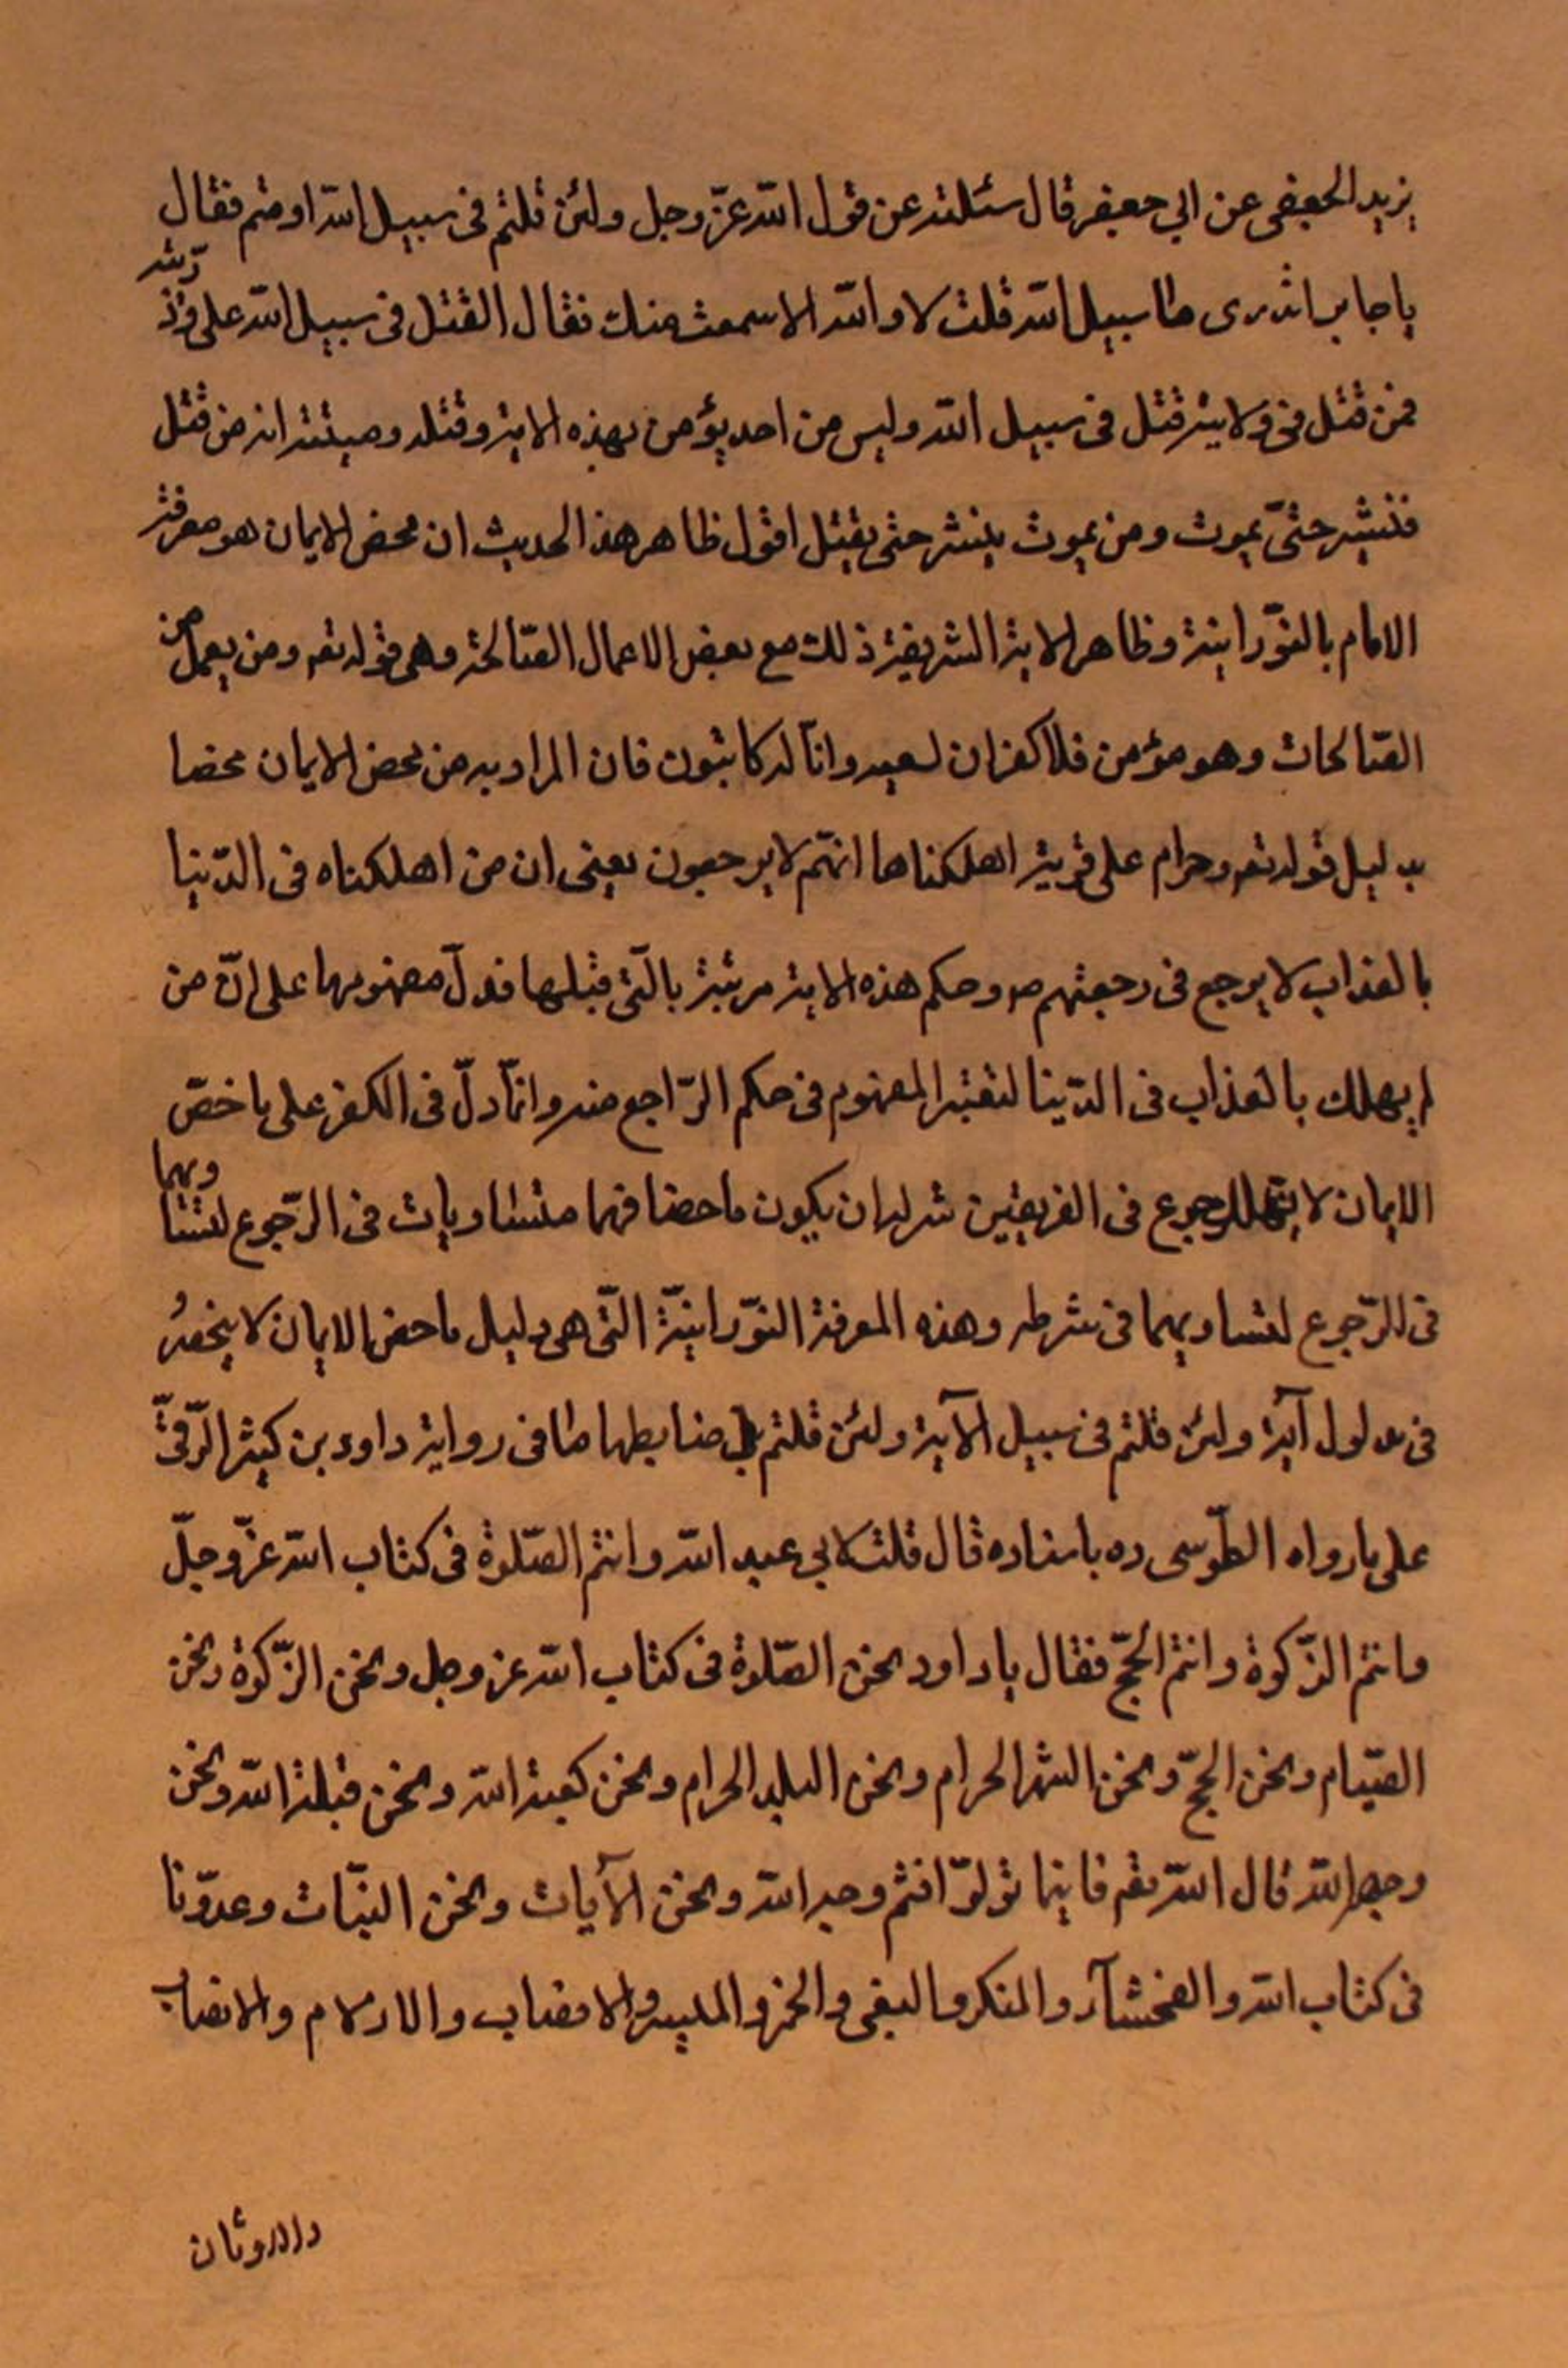 يزيد الجعفى عن ابي جعفر قال سئلته عن قول الله عزّ وجل ولئن قتلتم فى سبيل الله او متم فقال
يا جابر اتدرى ما سبيل الله قلت لا والله الا سمعت منك فقال القتل فى سبيل الله على وذريته
فمن قتل فى ولايته قتل فى سبيل الله وليس من احد يؤمن بهذه الاية وقتله وميتته انه من قتل
فينشر حتىّ يموت ومن يموت ينشر حتى يقتل اقول ظاهر هذا الحديث ان محض الايمان هو معرفة
الامام بالنوّرانية وظاهر الاية الشريفة ذلك مع بعض الاعمال الصّالحة وهى قوله تعم ومن يعمل من
الصّالحات وهو مؤمن فلا كفران لسعيه وانّا له كاتبون فان المراد به من محض الايمان محضا
بدليل قوله تعم وحرام على قرية اهلكناها انهّم لا يرجعون يعنى ان من اهلكناه فى الدّنيا
بالعذاب لا يرجع فى رجعتهم وحكم هذه الاية مرتبة بالّتى قبلها فدلّ مفهومها على انّ من
لم يهلك بالعذاب فى الدّينا لتعتبر المفهوم فى حكم الرّاجع منه وانّما دلّ فى الكفر على ما خصّ
الايمان لا للرجوع فى الفريقين شرله ان يكون ماحضا فهما متساويات فى الرّجوع لتساويهما
فى الرّجوع لتساويهما فى شرطه وهذه المعرفة النوّرانيّة التّى هى دليل ماحض الايمان لا ينحصر
فى مدلول آية ولئن قتلتم فى سبيل الآية ولئن قتلتم بل ضابطها ما فى رواية داود بن كيثر الرّقىّ
على ما رواه الطّوسى ره باسناده قال قلت لابي عبد الله وانتم الصّلوة فى كتاب الله عزّ وجلّ
وانتم الزّكوة وانتم الحجّ فقال يا داود نحن الصّلوة فى كتاب الله عز وجل ونحن الزّكوة ونحن
الصّيام ونحن الحجّ ونحن الشهر الحرام ونحن البلد الحرام ونحن كعبة الله ونحن قبلة الله ونحن
وجه الله قال الله تعم فاينما تولوّا فثم وجه الله ونحن الآيات ونحن البيّنات وعدوّنا
فى كتاب الله والفحشآء والمنكر والبغى والخمر والميسر والانصاب والازلام والانصاب
والاوثان